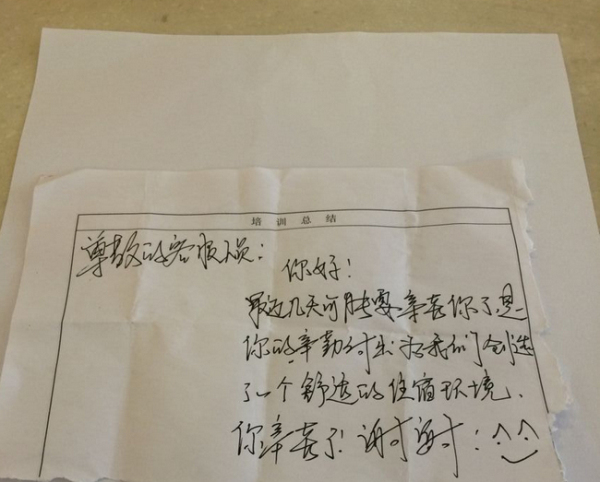 培训总结
尊敬的客服人员：
你好！
最近几天可能要辛苦你了，是
你的辛勤付出为我们创造
了一个舒适的住宿环境、
你辛苦了！谢谢！^_^